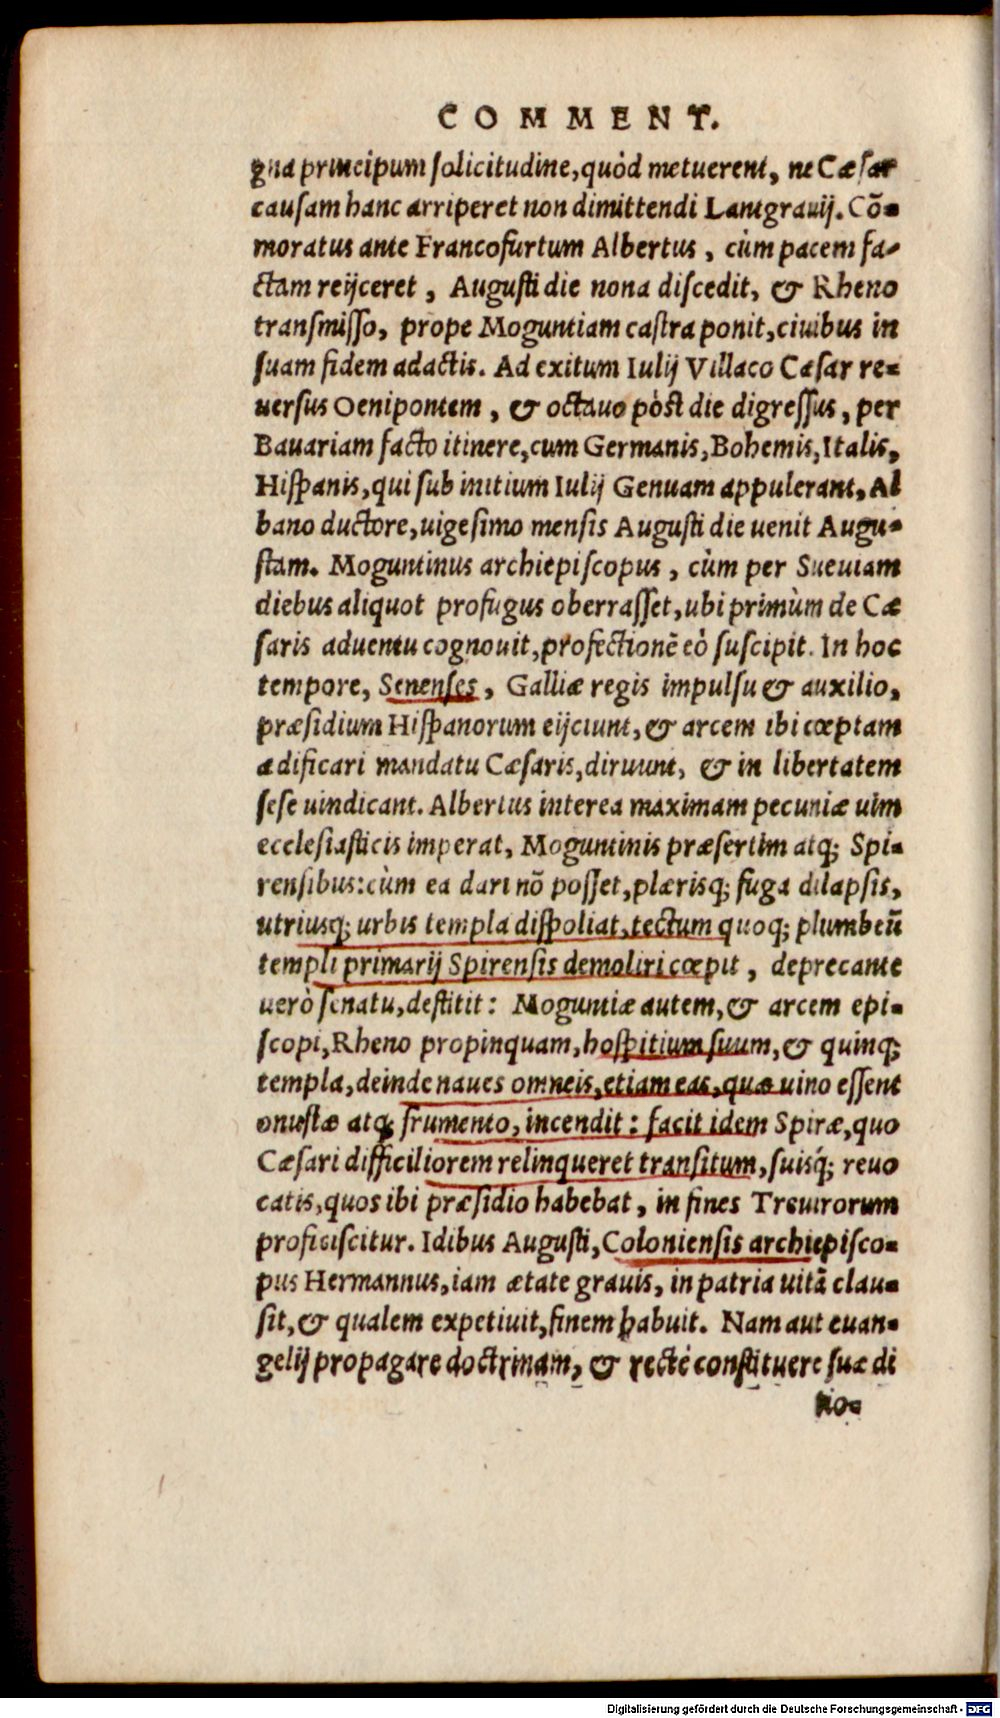 COMMENT.
gna principum solicitudine, quòd metuerent, ne Cæsar
causam hanc arriperet non dimittendi Lantgrauij. Cõ-
moratus ante Francofurtum Albertus, cùm pacem fa-
ctam reijceret, Augusti die nona discedit, & Rheno
transmisso, prope Moguntiam castra ponit, ciuibus in
suam fidem adactis. Ad exitum Iulij Villaco Cæsar re-
uersus Oenipontem, & octauo pòst die digressus, per
Bauariam facto itinere, cum Germanis, Bohemis, Italis,
Hispanis, qui sub initium Iulij Genuam appulerant, Al
bano ductore, uigesimo mensis Augusti die uenit Augu-
stam. Moguntinus archiepiscopus, cùm per Sueuiam
diebus aliquot profugus oberrasset, ubi primùm de Cæ
saris aduentu cognouit, profectionẽ eò suscipit. In hoc
tempore, Senenses, Galliæ regis impulsu & auxilio,
præsidium Hispanorum eijciunt, & arcem ibi cœptam
ædificari mandatu Cæsaris, diruunt, & in libertatem
sese uindicant. Albertus interea maximam pecuniæ uim
ecclesiasticis imperat, Moguntinis præsertim atq; Spi-
rensibus: cùm ea dari nõ posset, plærisq; fuga dilapsis,
utriusq; urbis templa dispoliat, tectum quoq; plumbeũ
templi primarij Spirensis demoliri cœpit, deprecante
uerò senatu, destitit: Moguntiæ autem, & arcem epi-
scopi, Rheno propinquam, hospitium suum, & quinq;
templa, deinde naues omneis, etiam eas, quæ uino essent
onustæ atq; frumento, incendit: facit idem Spiræ, quo
Cæsari difficiliorem relinqueret transitum, suisq́; reuo
catis, quos ibi præsidio habebat, in fines Treuirorum
proficiscitur. Idibus Augusti, Coloniensis archiepisco-
pus Hermannus, iam ætate grauis, in patria uitã clau-
sit, & qualem expetiuit, finem habuit. Nam aut euan-
gelij propagare doctrinam, & rectè constituere suæ di
no-
Digitalisierung gefördert durch die Deutsche Forschungsgemeinschaft - DFG